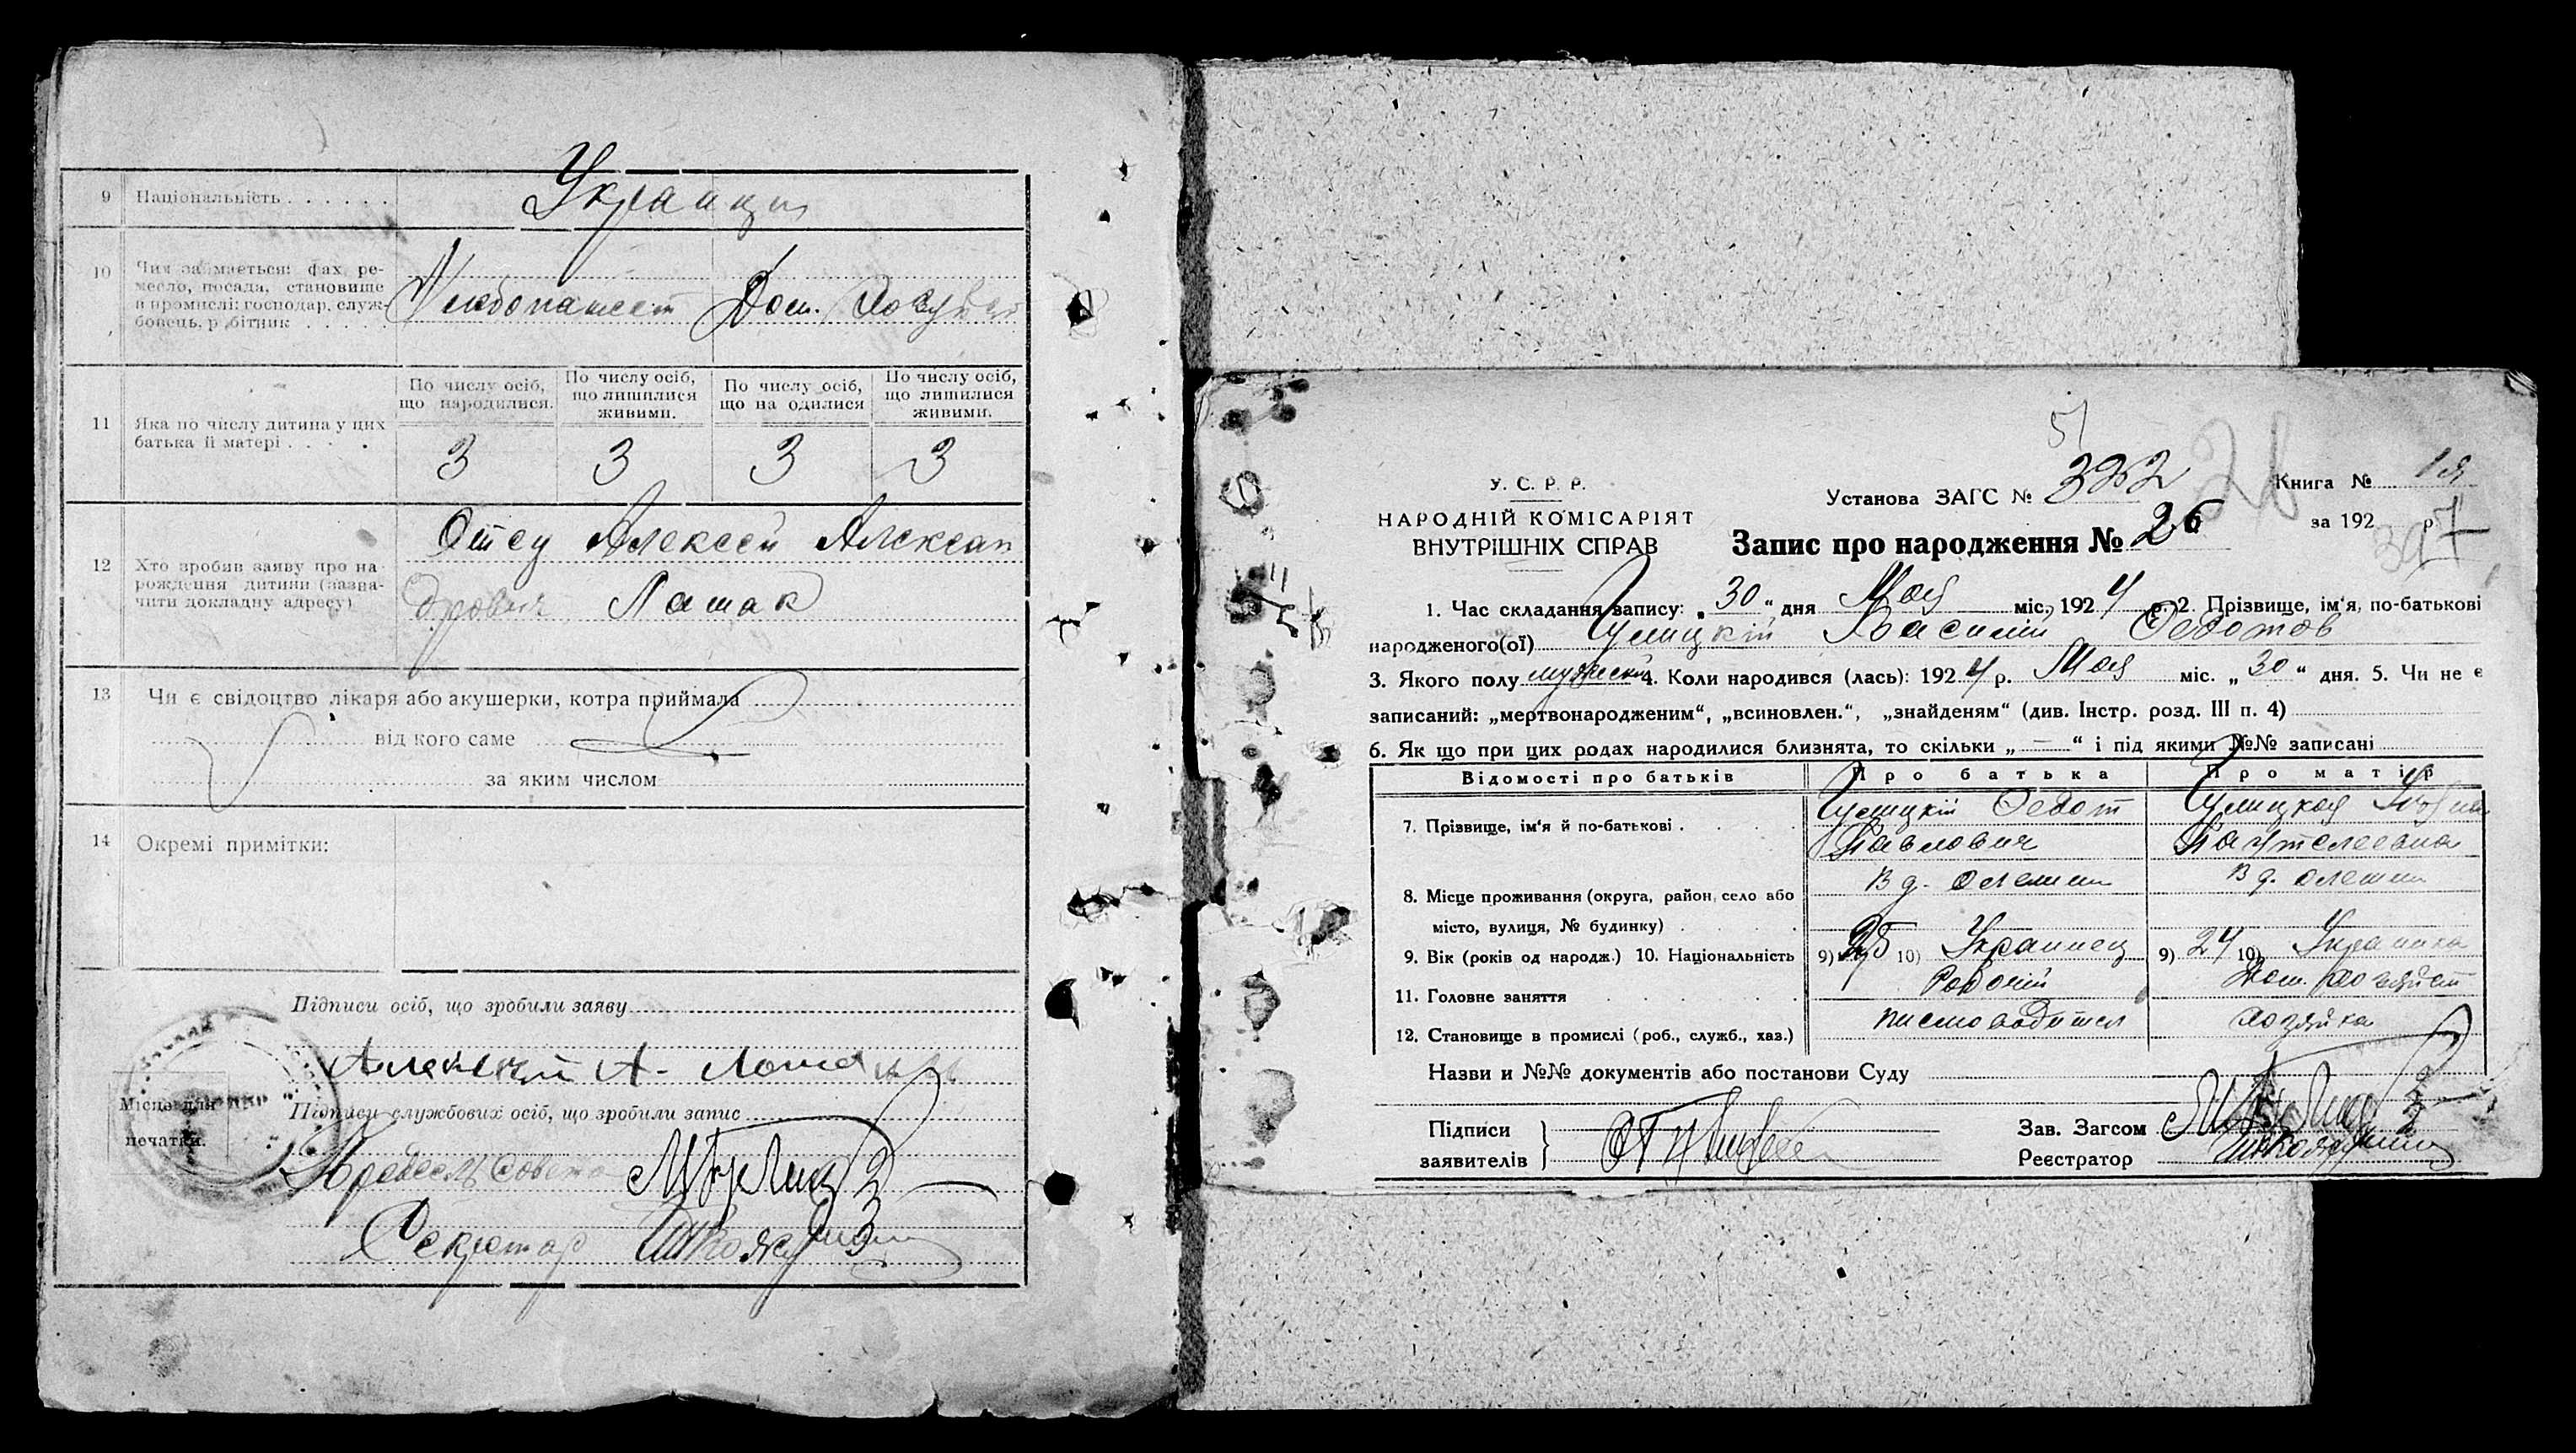 9 Національність . . . . . .
Украинцы
10 Чим займається: фах, ре-
месло, посада, становище
в промислі: господар, служ-
бовець, робітник . . . . .
Хлебопашест Дом.
11 Яка по числу дитина у цих
батька й матері . . . .
По числу осіб, що народилися.
По числу осіб, що лишилися живими.
По числу осіб, що на одилися
По числу осіб, що лишилися живими.
3 3 3 3
12 Хто зробив заяву про на-
рождення дитини (зазна-
чити докладну адресу)
Отец Алексей Алексан
дрович
13 Чи є свідоцтво лікаря або акушерки, котра приймала
від кого саме
за яким числом
14 Окремі примітки:
Підписи осіб, що зробили заяву
Алексей А.
Місце для
печатки.
Підписи службових осіб, що зробили запис
Секретар
51
У. С. Р. Р.
НАРОДНІЙ КОМІСАРІЯТ
ВНУТРІШНІХ СПРАВ
Установа ЗАГС № 322
26
Запис про народження № 26
Книга № 1я
за 192 р.
397
1. Час складання запису: „30“ дня Мая міс., 1924 р. 2. Прізвище, ім'я, по-батькові
народженого(ої) Василий Федотов
3. Якого полу мужеский 4. Коли народився (лась): 1924 р. Мая міс. „30“ дня. 5. Чи не є
записаний: „мертвонародженим“, „всиновлен.“, „знайденям“ (див. Інстр. розд. III п. 4)
6. Як що при цих родах народилися близнята, то скільки „—“ і під якими №№ записані
Відомості про батьків Про батька Про матір
7. Прізвище, ім'я й по-батькові . . . .
Федот
Павлович
8. Місце проживання (округа, район, село або
місто, вулиця, № будинку) . . . .
В д. В д.
9. Вік (років од народж.) 10. Національність
9) 25 10) Украинец 9) 24 10) Украинка
11. Головне заняття . . . .
Рабочий Дом. хозяйст
12. Становище в промислі (роб., служб., хаз.)
писмоводител хозяйка
Назви и №№ документів або постанови Суду
Підписи
заявителів
Зав. Загсом
Реєстратор